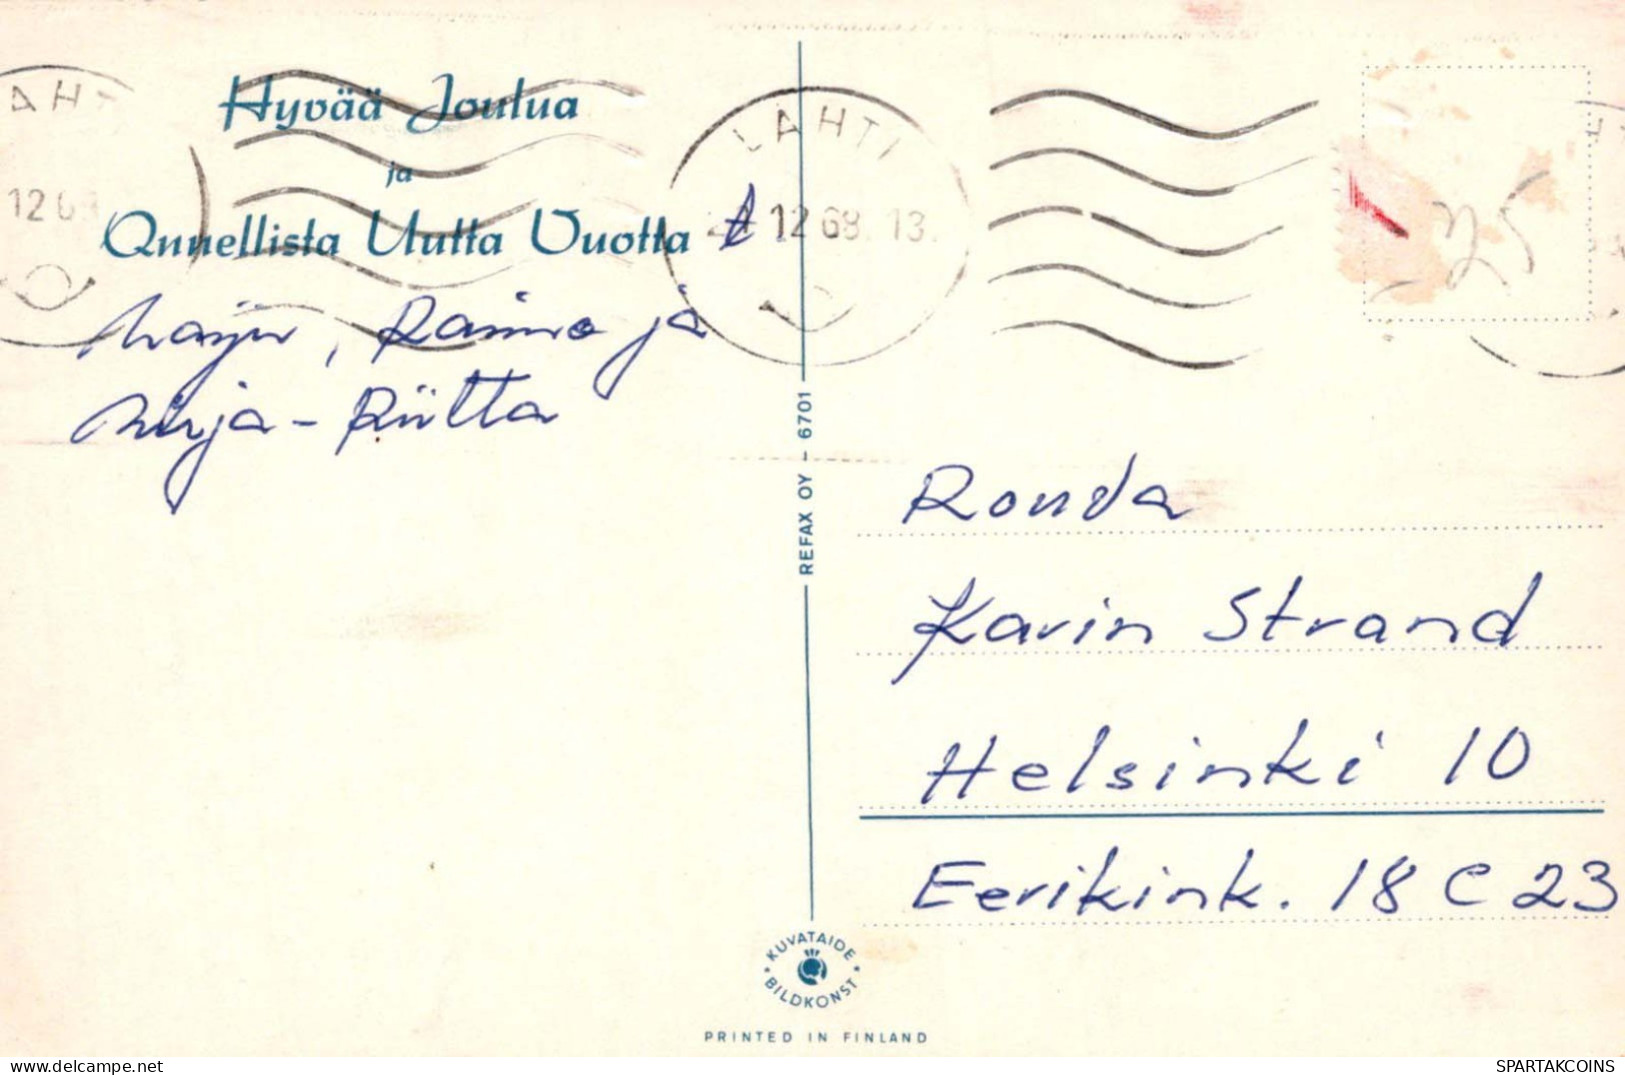 Hyvää Joulua
ja
Onnellista Uutta Vuotta
t
Marju, Raimo ja
Mirja-Riitta
LAHTI
12 68. 13.
AHT
12 68
25
REFAX OY – 6701
Rouva
Karin Strand
Helsinki 10
Eerikink. 18 C 23
KUVATAIDE
BILDKONST
PRINTED IN FINLAND
SPARTAKCOINS